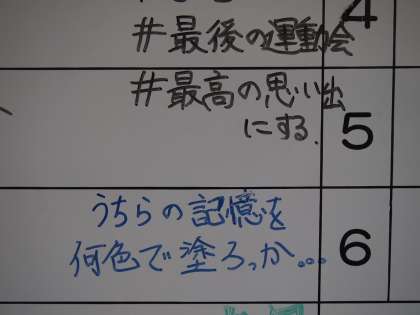 #最後の運動会
4
#最高の思い出
にする.
5
うちらの記憶を
何色で塗ろっか...
6